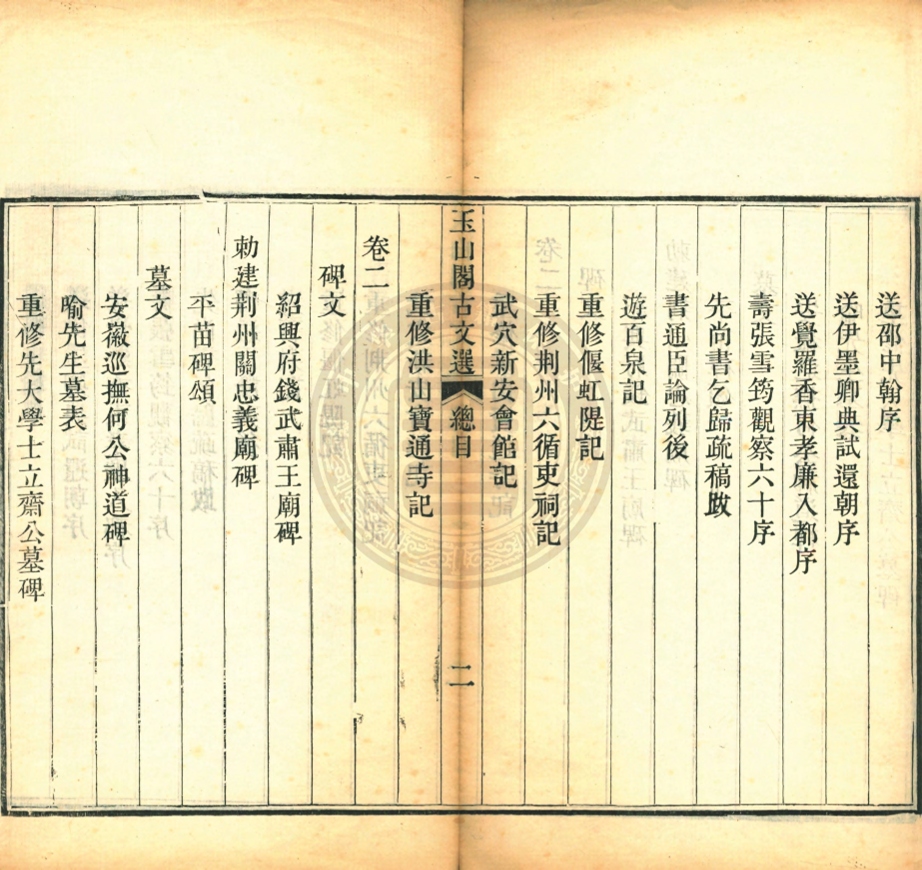 送邵中翰序
送伊墨卿典試還朝序
送覺羅香東孝廉入都序
壽張雪筠觀察六十序
先尚書乞歸疏稿跋
書通臣論列後
遊百泉記
重修偃虹隄記
重修荆州六循吏祠記
武穴新安會館記
玉山閣古文選 總目 二
重修洪山寶通寺記
卷二
碑文
紹興府錢武肅王廟碑
勅建荆州關忠義廟碑
平苗碑頌
墓文
安徽巡撫何公神道碑
喻先生墓表
重修先大學士立齋公墓碑